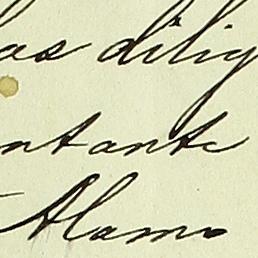 las dilig
ntante
Alamo